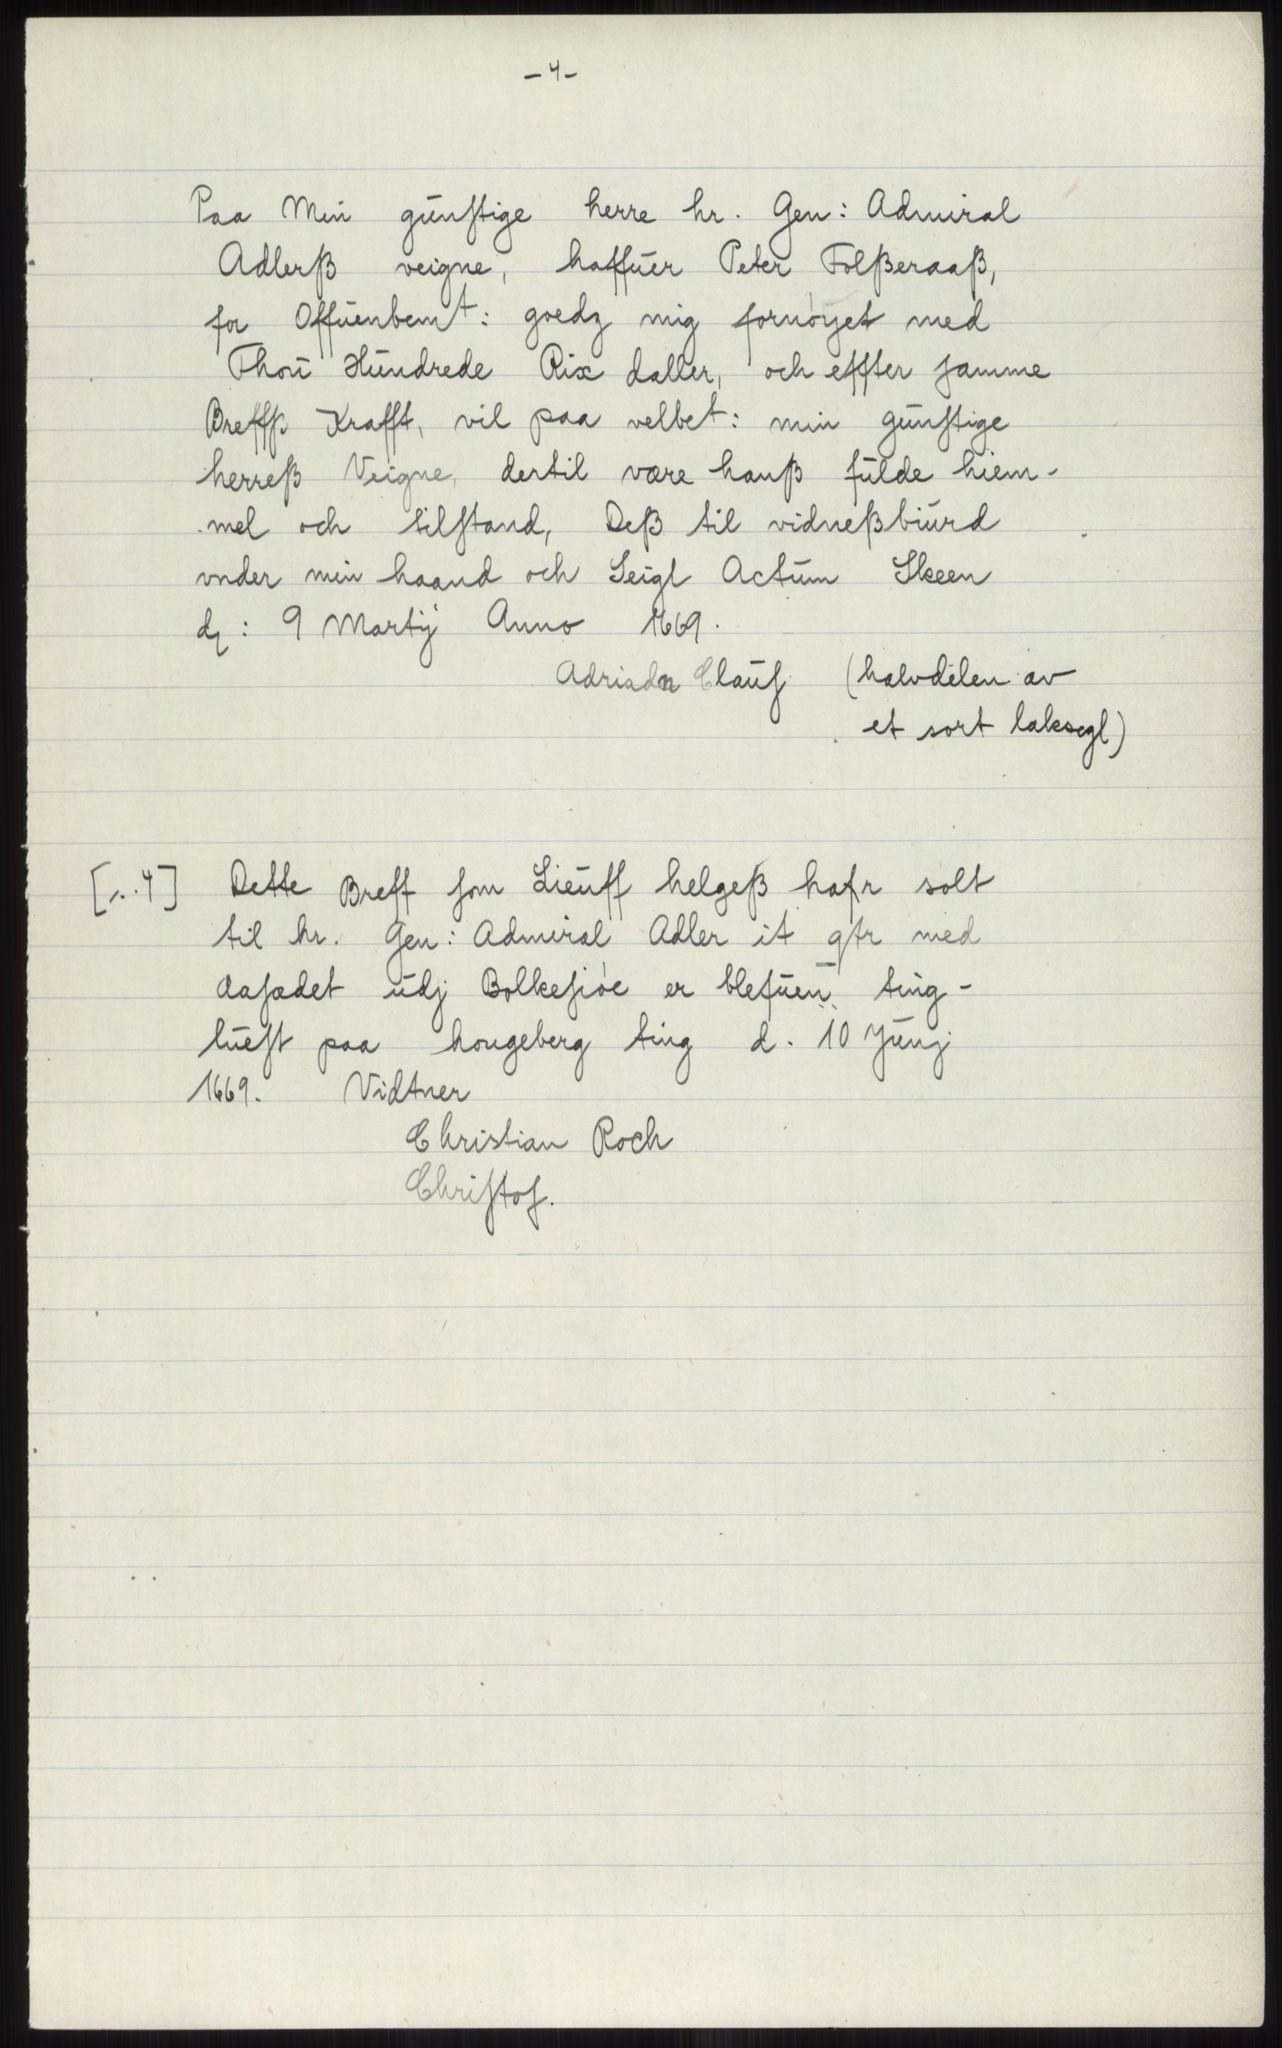 -4-
Paa Min günſtige herre hr. Gen: Admiral
Adlerß veigne, haffuer Peter Folßeraaß,
for Offuenbemt: goedz mig fornøyet med
Thou Hundrede Rix daller, och effter ſamme
Breffß Krafft, vil paa velbet: min günſtige
herreß Veigne, dertil være hanß fulde hiem-
mel och tilſtand, Deß til vidneßbiürd
vnder min haand och Seigl Actum Skeen
dȝ: 9 Martij Anno 1669.
Adriadn Clauſ (halvdelen av
et sort laksegl)
[s. 4] Dette Breff ſom Lieuff helgeß hafr solt
til hr. Gen: Admiral Adler it qtr med
Aaſædet udj Bolkeſiöe er blefuen ting-
lüeſt paa hougeberg ting d. 10 Junj
1669. Vidtner
Christian Roch
Chriſtof.